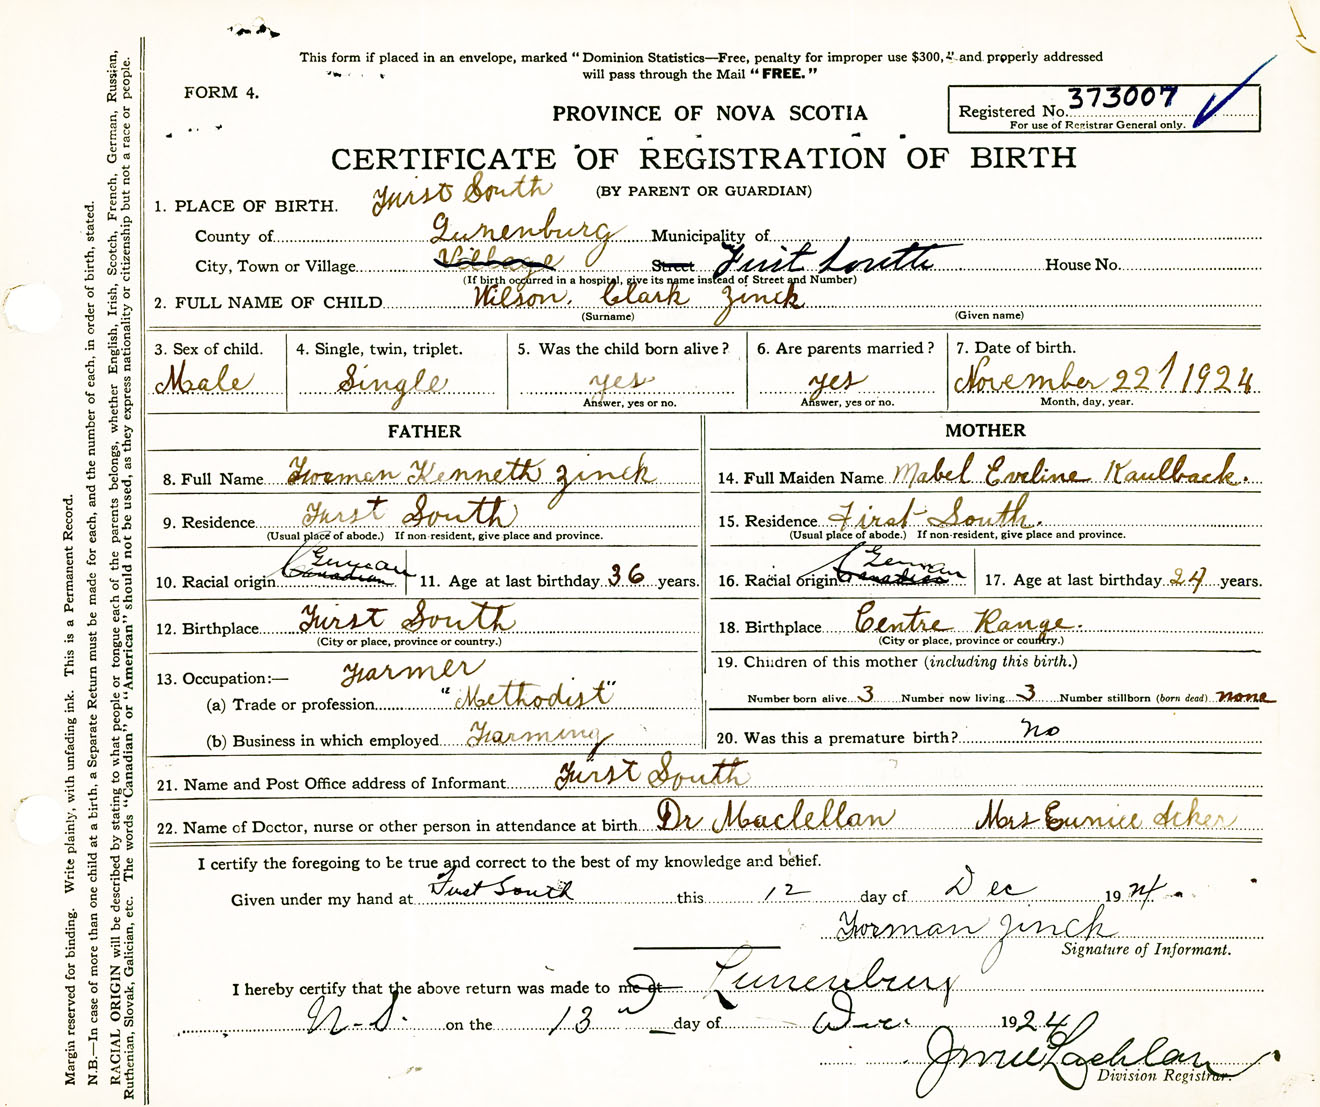 This form if placed in an envelope, marked "Dominion Statistics—Free, penalty for improper use $300," and properly addressed
will pass through the Mail "FREE."
FORM 4.
PROVINCE OF NOVA SCOTIA
Registered No. 373007
For use of Registrar General only.
CERTIFICATE OF REGISTRATION OF BIRTH
(BY PARENT OR GUARDIAN)
1. PLACE OF BIRTH. First South
County of Lunenburg Municipality of
City, Town or Village Village Street First South House No.
(If birth occurred in a hospital, give its name instead of Street and Number)
2. FULL NAME OF CHILD Wilson. Clark Zinck
(Surname) (Given name)
3. Sex of child. 4. Single, twin, triplet. 5. Was the child born alive? 6. Are parents married? 7. Date of birth.
Male Single yes yes November 22 1924
Answer, yes or no. Answer, yes or no. Month, day, year.
FATHER MOTHER
8. Full Name Forman Kenneth Zinck 14. Full Maiden Name Mabel Eveline Kaulback.
9. Residence First South 15. Residence First South.
(Usual place of abode.) If non-resident, give place and province. (Usual place of abode.) If non-resident, give place and province.
German German
10. Racial origin Canadian 11. Age at last birthday 36 years. 16. Racial origin Canadian 17. Age at last birthday 24 years.
12. Birthplace First South 18. Birthplace Centre Range.
(City or place, province or country.) (City or place, province or country.)
13. Occupation:— Farmer 19. Children of this mother (including this birth.)
(a) Trade or profession "Methodist" Number born alive 3 Number now living 3 Number stillborn (born dead) none
(b) Business in which employed Farming 20. Was this a premature birth? no
21. Name and Post Office address of Informant First South
22. Name of Doctor, nurse or other person in attendance at birth Dr Maclellan Mrs Eunice Acker
I certify the foregoing to be true and correct to the best of my knowledge and belief.
Given under my hand at First South this 12 day of Dec 1924
Forman Zinck
Signature of Informant.
I hereby certify that the above return was made to me at Lunenburg
N.S. on the 13 day of Dec. 1924
Division Registrar.
Margin reserved for binding. Write plainly, with unfading ink. This is a Permanent Record.
N.B.—In case of more than one child at a birth, a Separate Return must be made for each, and the number of each, in order of birth, stated.
RACIAL ORIGIN will be described by stating to what people or tongue each of the parents belongs, whether English, Irish, Scotch, French, German, Russian,
Ruthenian, Slovak, Galician, etc. The words "Canadian" or "American" should not be used, as they express nationality or citizenship but not a race or people.